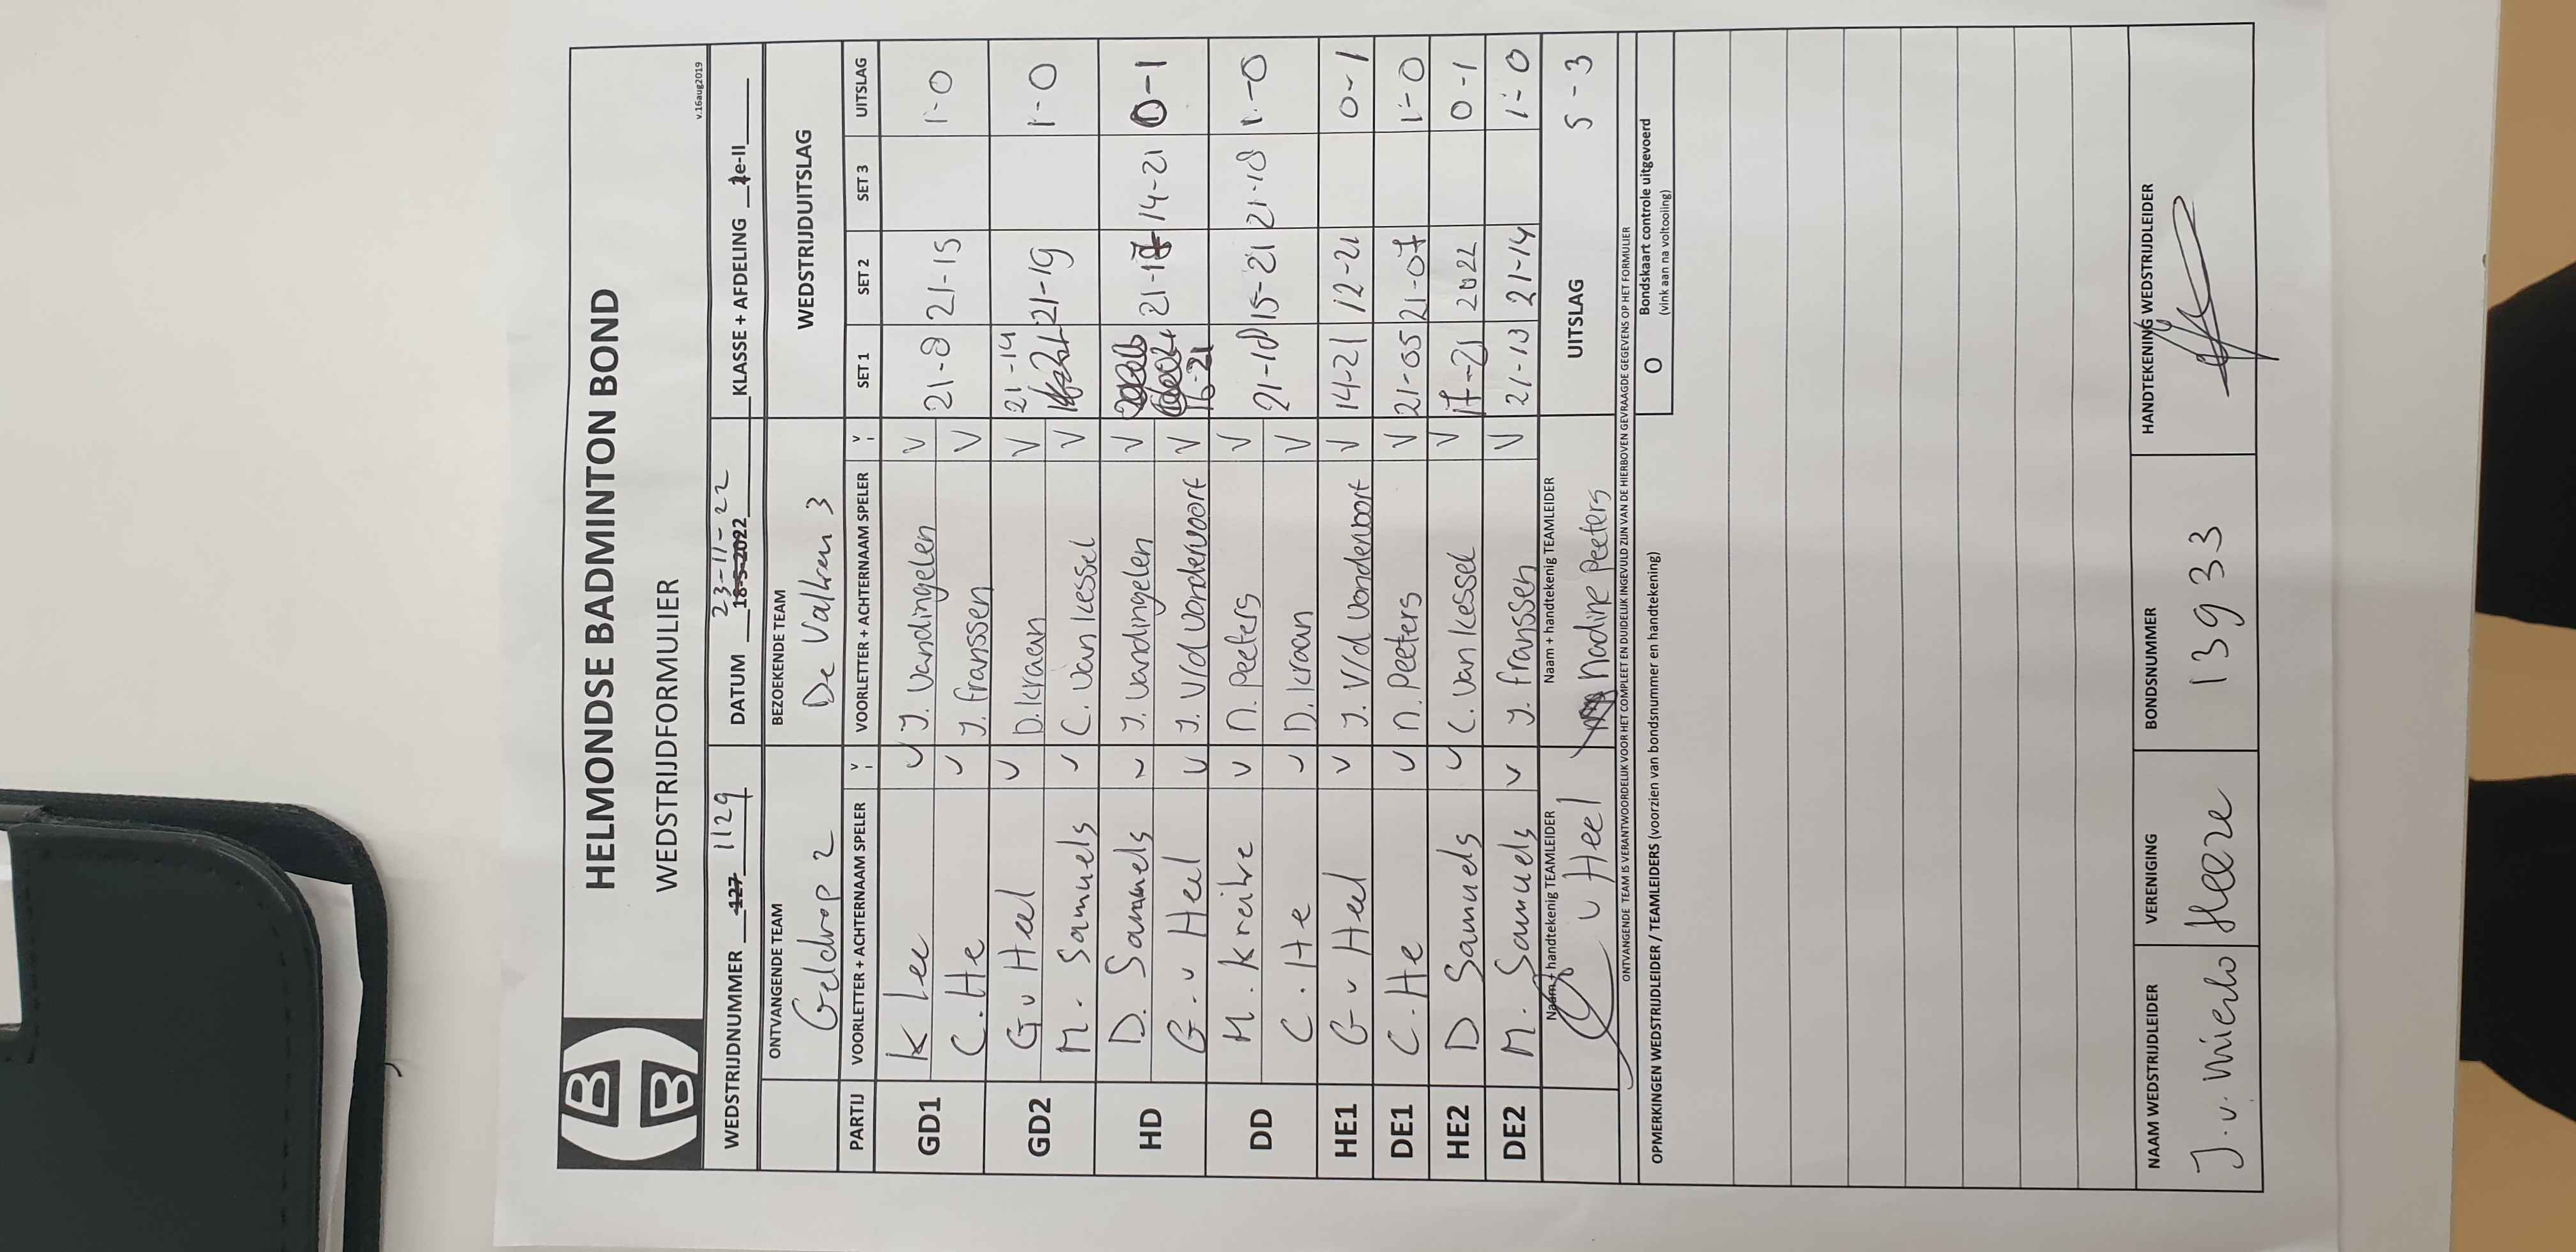 HELMONDSE BADMINTON BOND
WEDSTRIJDFORMULIER
v.16aug2019
WEDSTRIJDNUMMER 127 1129 DATUM 18-5-2022 23-11-22 KLASSE + AFDELING 1e-II
ONTVANGENDE TEAM BEZOEKENDE TEAM WEDSTRIJDUITSLAG
Geldrop 2 De Valken 3
PARTIJ VOORLETTER + ACHTERNAAM SPELER V VOORLETTER + ACHTERNAAM SPELER V SET 1 SET 2 SET 3 UITSLAG
GD1 K Lee V J. Vandingelen V 21-9 21-15 1-0
C. He V J. Franssen V
GD2 G v Heel V D. Kraan V 21-14 21-19 1-0
M. Samuels V C. van Kessel V
HD D. Samuels V J. Vandingelen V 16-21 21-17 14-21 0-1
G. v Heel V J. V/d Vondervoort V
DD M. Kreike V N. Peeters V 21-18 15-21 21-18 1-0
C. He V D. Kraan V
HE1 G v Heel V J. V/d Vondervoort V 14-21 12-21 0-1
DE1 C. He V N. Peeters V 21-05 21-07 1-0
HE2 D Samuels V C. van Kessel V 17-21 20 22 0-1
DE2 M. Samuels V J. Franssen V 21-13 21-14 1-0
Naam + handtekenig TEAMLEIDER Naam + handtekenig TEAMLEIDER UITSLAG 5-3
v Heel Nadine Peeters
ONTVANGENDE TEAM IS VERANTWOORDELIJK VOOR HET COMPLEET EN DUIDELIJK INGEVULD ZIJN VAN DE HIERBOVEN GEVRAAGDE GEGEVENS OP HET FORMULIER
OPMERKINGEN WEDSTRIJDLEIDER / TEAMLEIDERS (voorzien van bondsnummer en handtekening) O Bondskaart controle uitgevoerd
(vink aan na voltooling)
NAAM WEDSTRIJDLEIDER VERENIGING BONDSNUMMER HANDTEKENING WEDSTRIJDLEIDER
J. v. Mierlo Heeze 13933